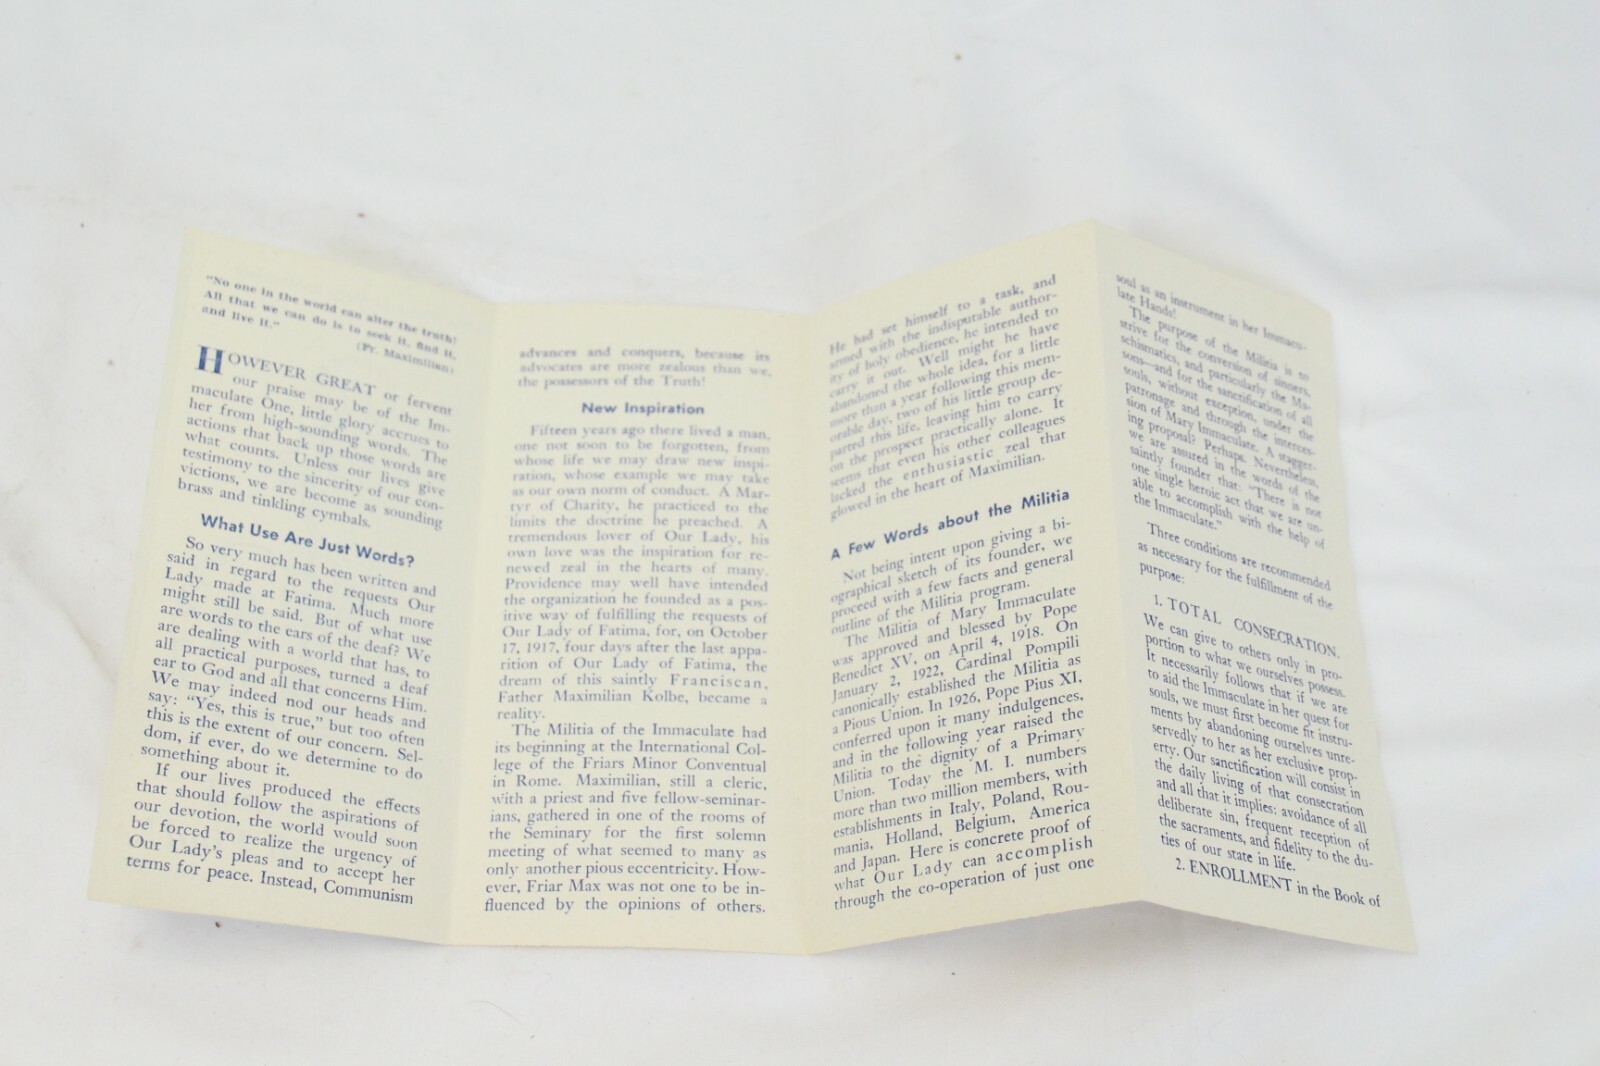 "No one in the world can alter the truth!
All that we can do is to seek it, find it,
and live it."
(Fr. Maximilian)
HOWEVER GREAT or fervent
our praise may be of the Im-
maculate One, little glory accrues to
her from high-sounding words. The
actions that back up those words are
what counts. Unless our lives give
testimony to the sincerity of our con-
victions, we are become as sounding
brass and tinkling cymbals.
What Use Are Just Words?
So very much has been written and
said in regard to the requests Our
Lady made at Fatima. Much more
might still be said. But of what use
are words to the ears of the deaf? We
are dealing with a world that has, to
all practical purposes, turned a deaf
ear to God and all that concerns Him.
We may indeed nod our heads and
say: "Yes, this is true," but too often
this is the extent of our concern. Sel-
dom, if ever, do we determine to do
something about it.
If our lives produced the effects
that should follow the aspirations of
our devotion, the world would soon
be forced to realize the urgency of
Our Lady's pleas and to accept her
terms for peace. Instead, Communism
advances and conquers, because its
advocates are more zealous than we,
the possessors of the Truth!
New Inspiration
Fifteen years ago there lived a man,
one not soon to be forgotten, from
whose life we may draw new inspi-
ration, whose example we may take
as our own norm of conduct. A Mar-
tyr of Charity, he practiced to the
limits the doctrine he preached. A
tremendous lover of Our Lady, his
own love was the inspiration for re-
newed zeal in the hearts of many.
Providence may well have intended
the organization he founded as a pos-
itive way of fulfilling the requests of
Our Lady of Fatima, for, on October
17, 1917, four days after the last appa-
rition of Our Lady of Fatima, the
dream of this saintly Franciscan,
Father Maximilian Kolbe, became a
reality.
The Militia of the Immaculate had
its beginning at the International Col-
lege of the Friars Minor Conventual
in Rome. Maximilian, still a cleric,
with a priest and five fellow-seminar-
ians, gathered in one of the rooms of
the Seminary for the first solemn
meeting of what seemed to many as
only another pious eccentricity. How-
ever, Friar Max was not one to be in-
fluenced by the opinions of others.
He had set himself to a task, and
armed with the indisputable author-
ity of holy obedience, he intended to
carry it out. Well might he have
abandoned the whole idea, for a little
more than a year following this mem-
orable day, two of his little group de-
parted this life, leaving him to carry
on the prospect practically alone. It
seems that even his other colleagues
lacked the enthusiastic zeal that
glowed in the heart of Maximilian.
A Few Words about the Militia
Not being intent upon giving a bi-
ographical sketch of its founder, we
proceed with a few facts and general
outline of the Militia program.
The Militia of Mary Immaculate
was approved and blessed by Pope
Benedict XV, on April 4, 1918. On
January 2, 1922, Cardinal Pompili
canonically established the Militia as
a Pious Union. In 1926, Pope Pius XI,
conferred upon it many indulgences,
and in the following year raised the
Militia to the dignity of a Primary
Union. Today the M. I. numbers
more than two million members, with
establishments in Italy, Poland, Rou-
mania, Holland, Belgium, America
and Japan. Here is concrete proof of
what Our Lady can accomplish
through the co-operation of just one
soul as an instrument in her Immacu-
late Hands!
The purpose of the Militia is to
strive for the conversion of sinners,
schismatics, and particularly the Ma-
sons—and for the sanctification of all
souls, without exception, under the
patronage and through the interces-
sion of Mary Immaculate. A stagger-
ing proposal? Perhaps. Nevertheless,
we are assured in the words of the
saintly founder that: "There is not
one single heroic act that we are un-
able to accomplish with the help of
the Immaculate."
Three conditions are recommended
as necessary for the fulfillment of the
purpose:
1. TOTAL CONSECRATION.
We can give to others only in pro-
portion to what we ourselves possess.
It necessarily follows that if we are
to aid the Immaculate in her quest for
souls, we must first become fit instru-
ments by abandoning ourselves unre-
servedly to her as her exclusive prop-
erty. Our sanctification will consist in
the daily living of that consecration
and all that it implies: avoidance of all
deliberate sin, frequent reception of
the sacraments, and fidelity to the du-
ties of our state in life.
2. ENROLLMENT in the Book of